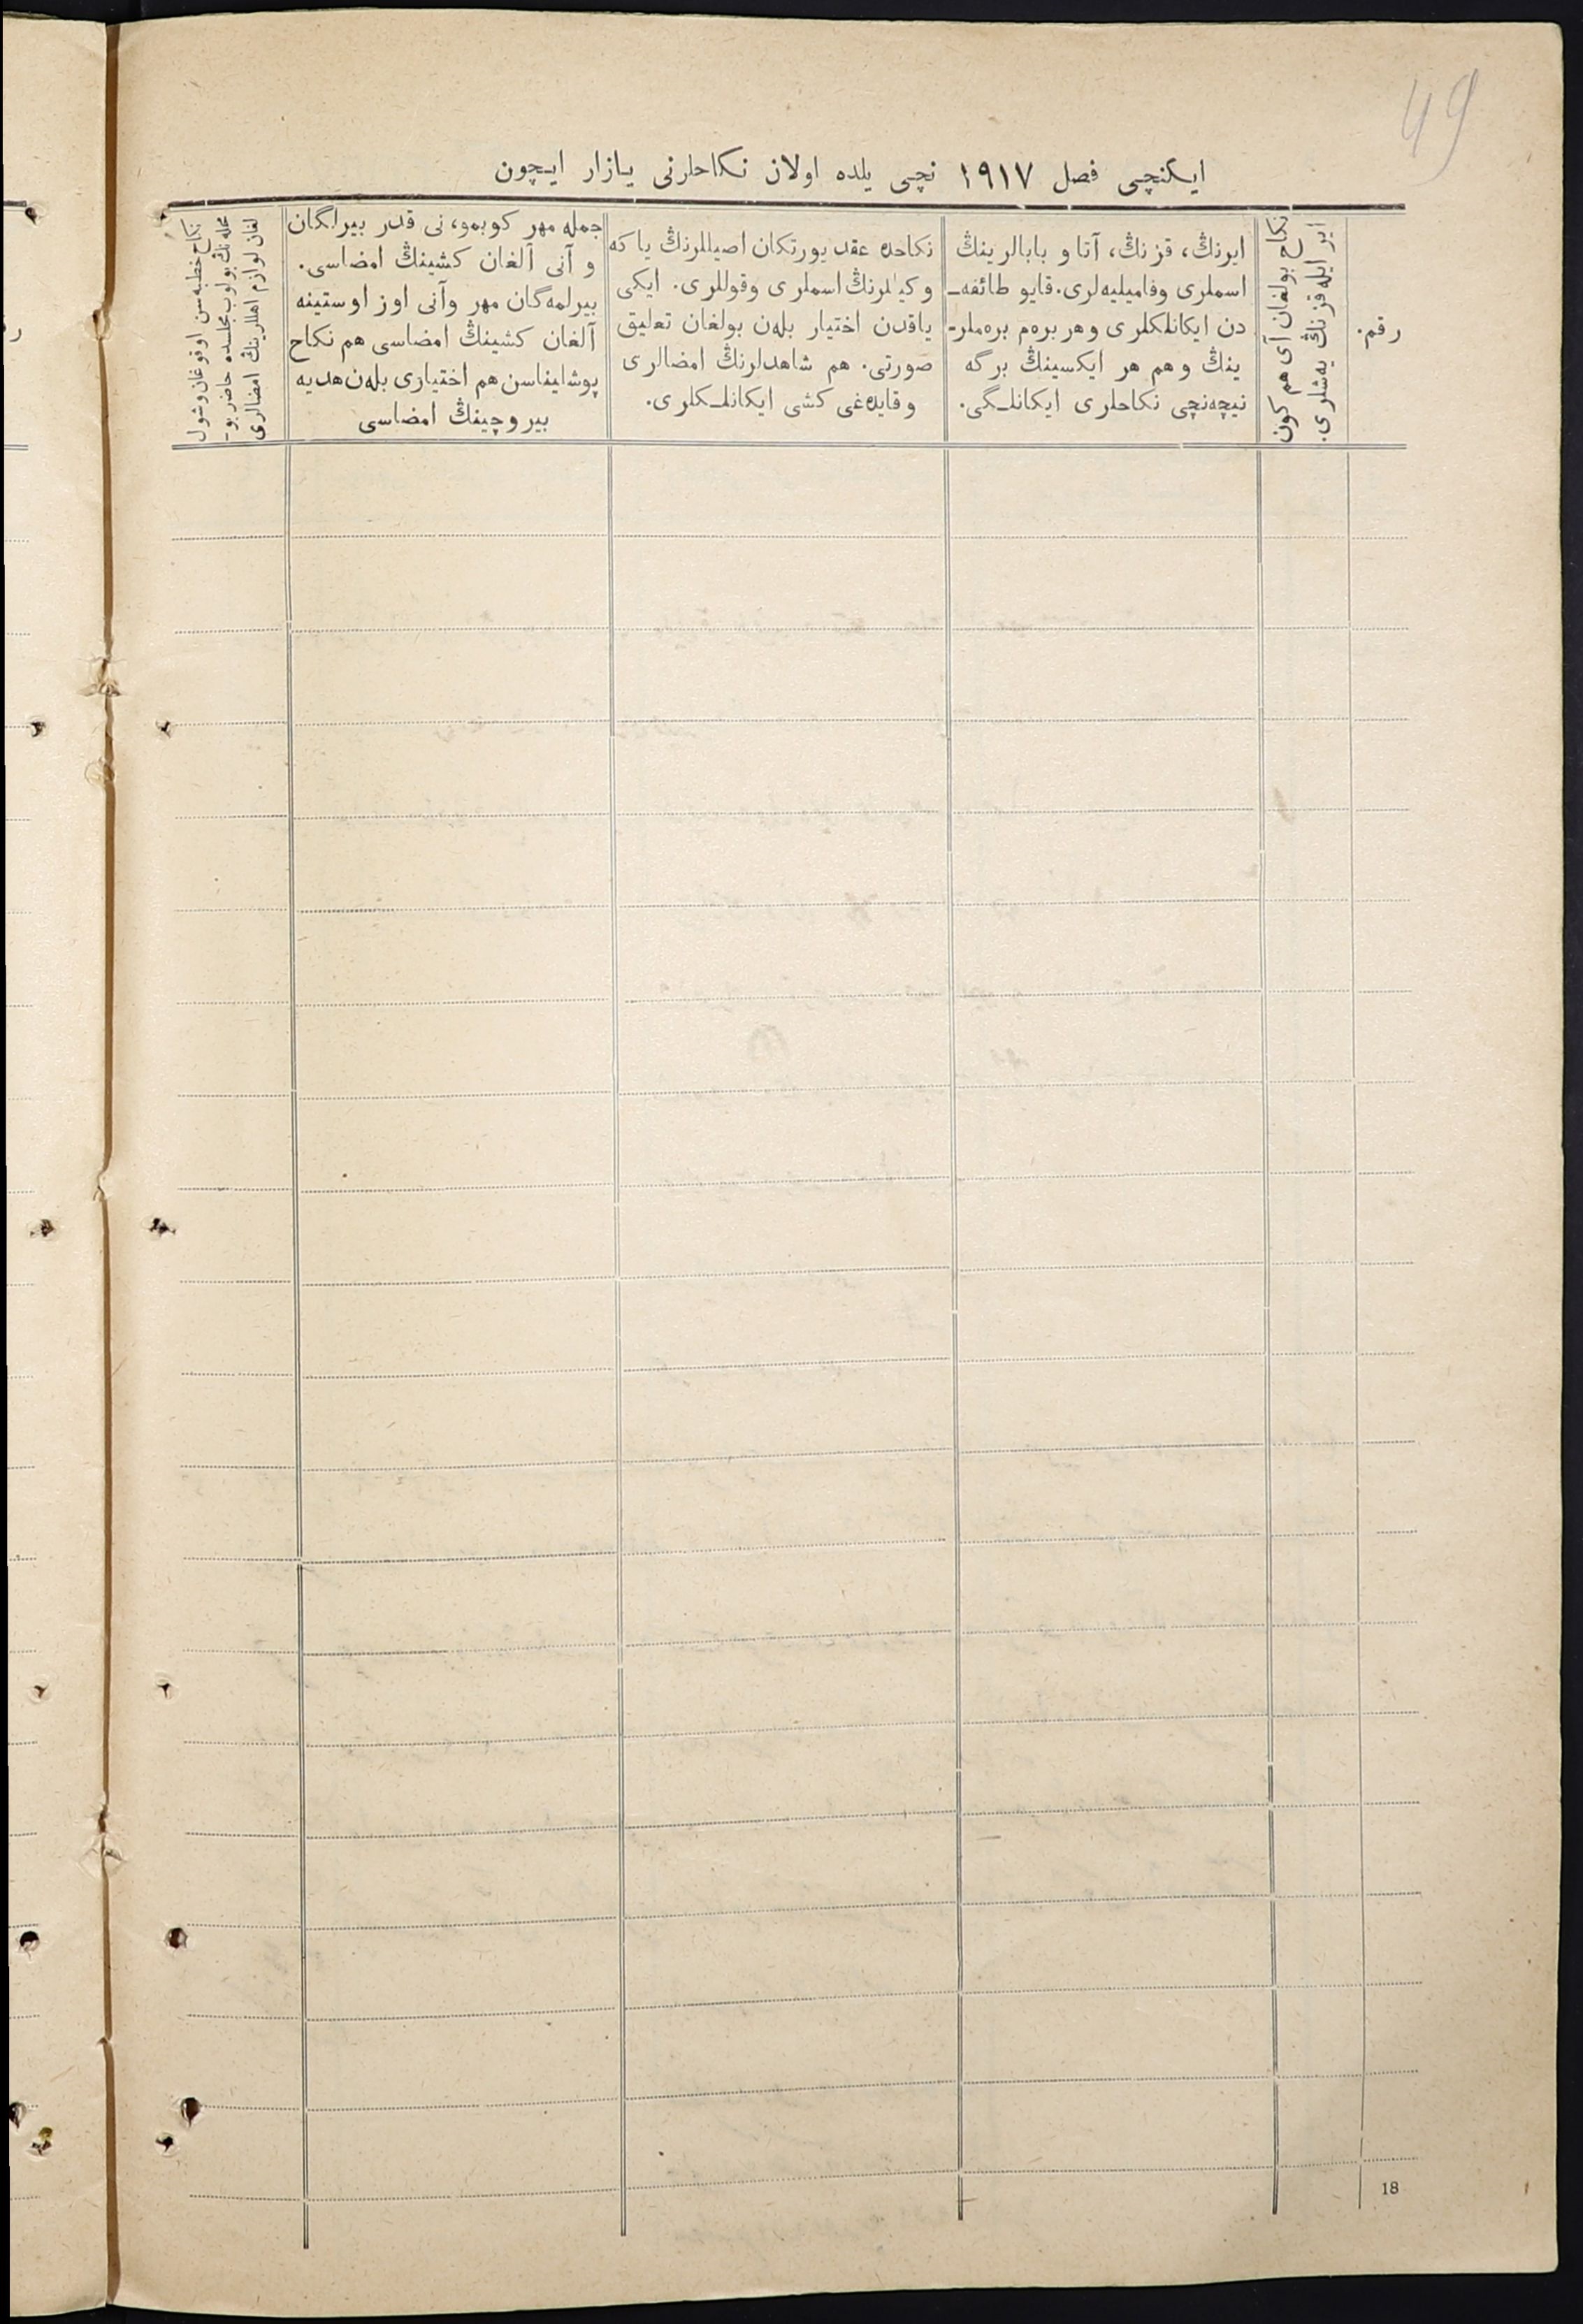 49
ایکنچی فصل ١٩١٧ نچی یلده اولان نکاحلرنی یازار ایچون
رقم.
نکاح بولغان آی هم کون
ایر ایله قزنڭ یه‌شلری.
ایرنڭ، قزنڭ، آتا و بابالرینڭ
اسملری وفامیلیه‌لری. قایو طائفه‌ـ
دن ایکانلکلری وهر بره‌م بره‌ملرـ
ینڭ وهم هر ایکسینڭ برگه
نیچه‌نچی نکاحلری ایکانلـگی.
نکاحده عقد یورتکان اصیللرنڭ یاکه
وکیللرنڭ اسملری وقوللری. ایکی
یاقدن اختیار بله‌ن بولغان تعلیق
صورتی. هم شاهدلرنڭ امضالری
وقایده‌غی کشی ایکانلـکلری.
جمله مهر کوبمو، نی قدر بیرلگان
و آنی آلغان کشینڭ امضاسی.
بیرلمه‌گان مهر وآنی اوز اوستینه
آلغان کشینڭ امضاسی هم نکاح
پوشلیناسن هم اختیاری بله‌ن هدیه
بیروچینڭ امضاسی
نکاح خطبه‌سن اوقوغان وشول
محله‌نڭ بولوب مجلسده حاضر بوـ
لغان لوازم اهللرینڭ امضالری
18